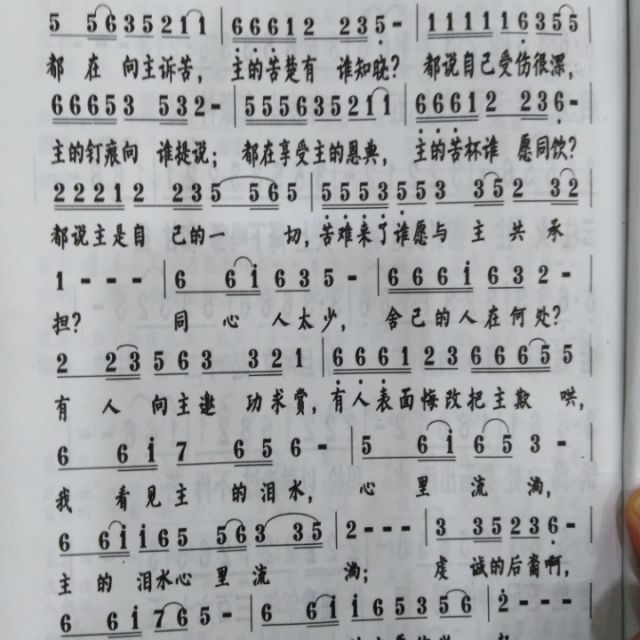 5 5 6 3 5 2 1 1 | 6 6 6 1 2 2 3 5 - | 1 1 1 1 1 6 3 5 5
都 在 向主诉苦, 主的苦楚有 谁知晓? 都说自己受伤很深,
6 6 6 5 3 5 3 2 - | 5 5 5 6 3 5 2 1 1 | 6 6 6 1 2 2 3 6 -
主的钉痕向 谁提说; 都在享受主的恩典, 主的苦杯谁 愿同饮?
2 2 2 1 2 2 3 5 5 6 5 | 5 5 5 3 5 5 3 3 5 2 3 2
都说主是自 己的一 切, 苦难来了谁愿与 主 共 承
1 - - - | 6 6 i 6 3 5 - | 6 6 6 i 6 3 2 - |
担? 同 心 人太少, 舍己的人在何处?
2 2 3 5 6 3 3 2 1 | 6 6 6 1 2 3 6 6 6 5 5 |
有 人 向主邀 功求赏, 有人表面悔改把主欺 哄,
6 6 i 7 6 5 6 - | 5 6 i 6 5 3 - |
我 看见主 的泪水, 心 里 流 淌,
6 6 i i 6 5 5 6 3 3 5 | 2 - - - | 3 3 5 2 3 6 -
主 的 泪水心 里 流 淌; 虔 诚的后裔啊,
6 6 i 7 6 5 - | 6 6 i i 6 5 3 5 6 | 2 - - - |